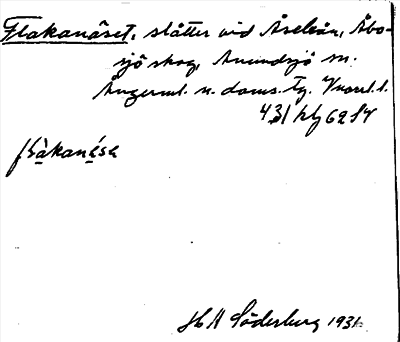 Flakanäset, slåtter vid Åseleån, Åbo-
sjö skog, Anundsjö sn.
Ångerml. n. doms. tg. Vnorrl. l.
431 hfg 6284
flàkanése
HA Söderberg 1931